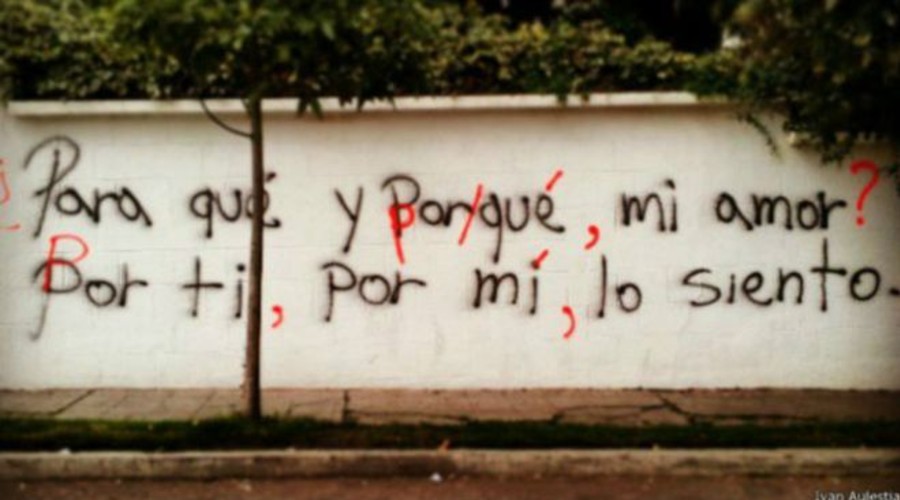 ¿Para qué y por/qué, mi amor?
Por ti, por mí, lo siento.
Ivan Aulestia